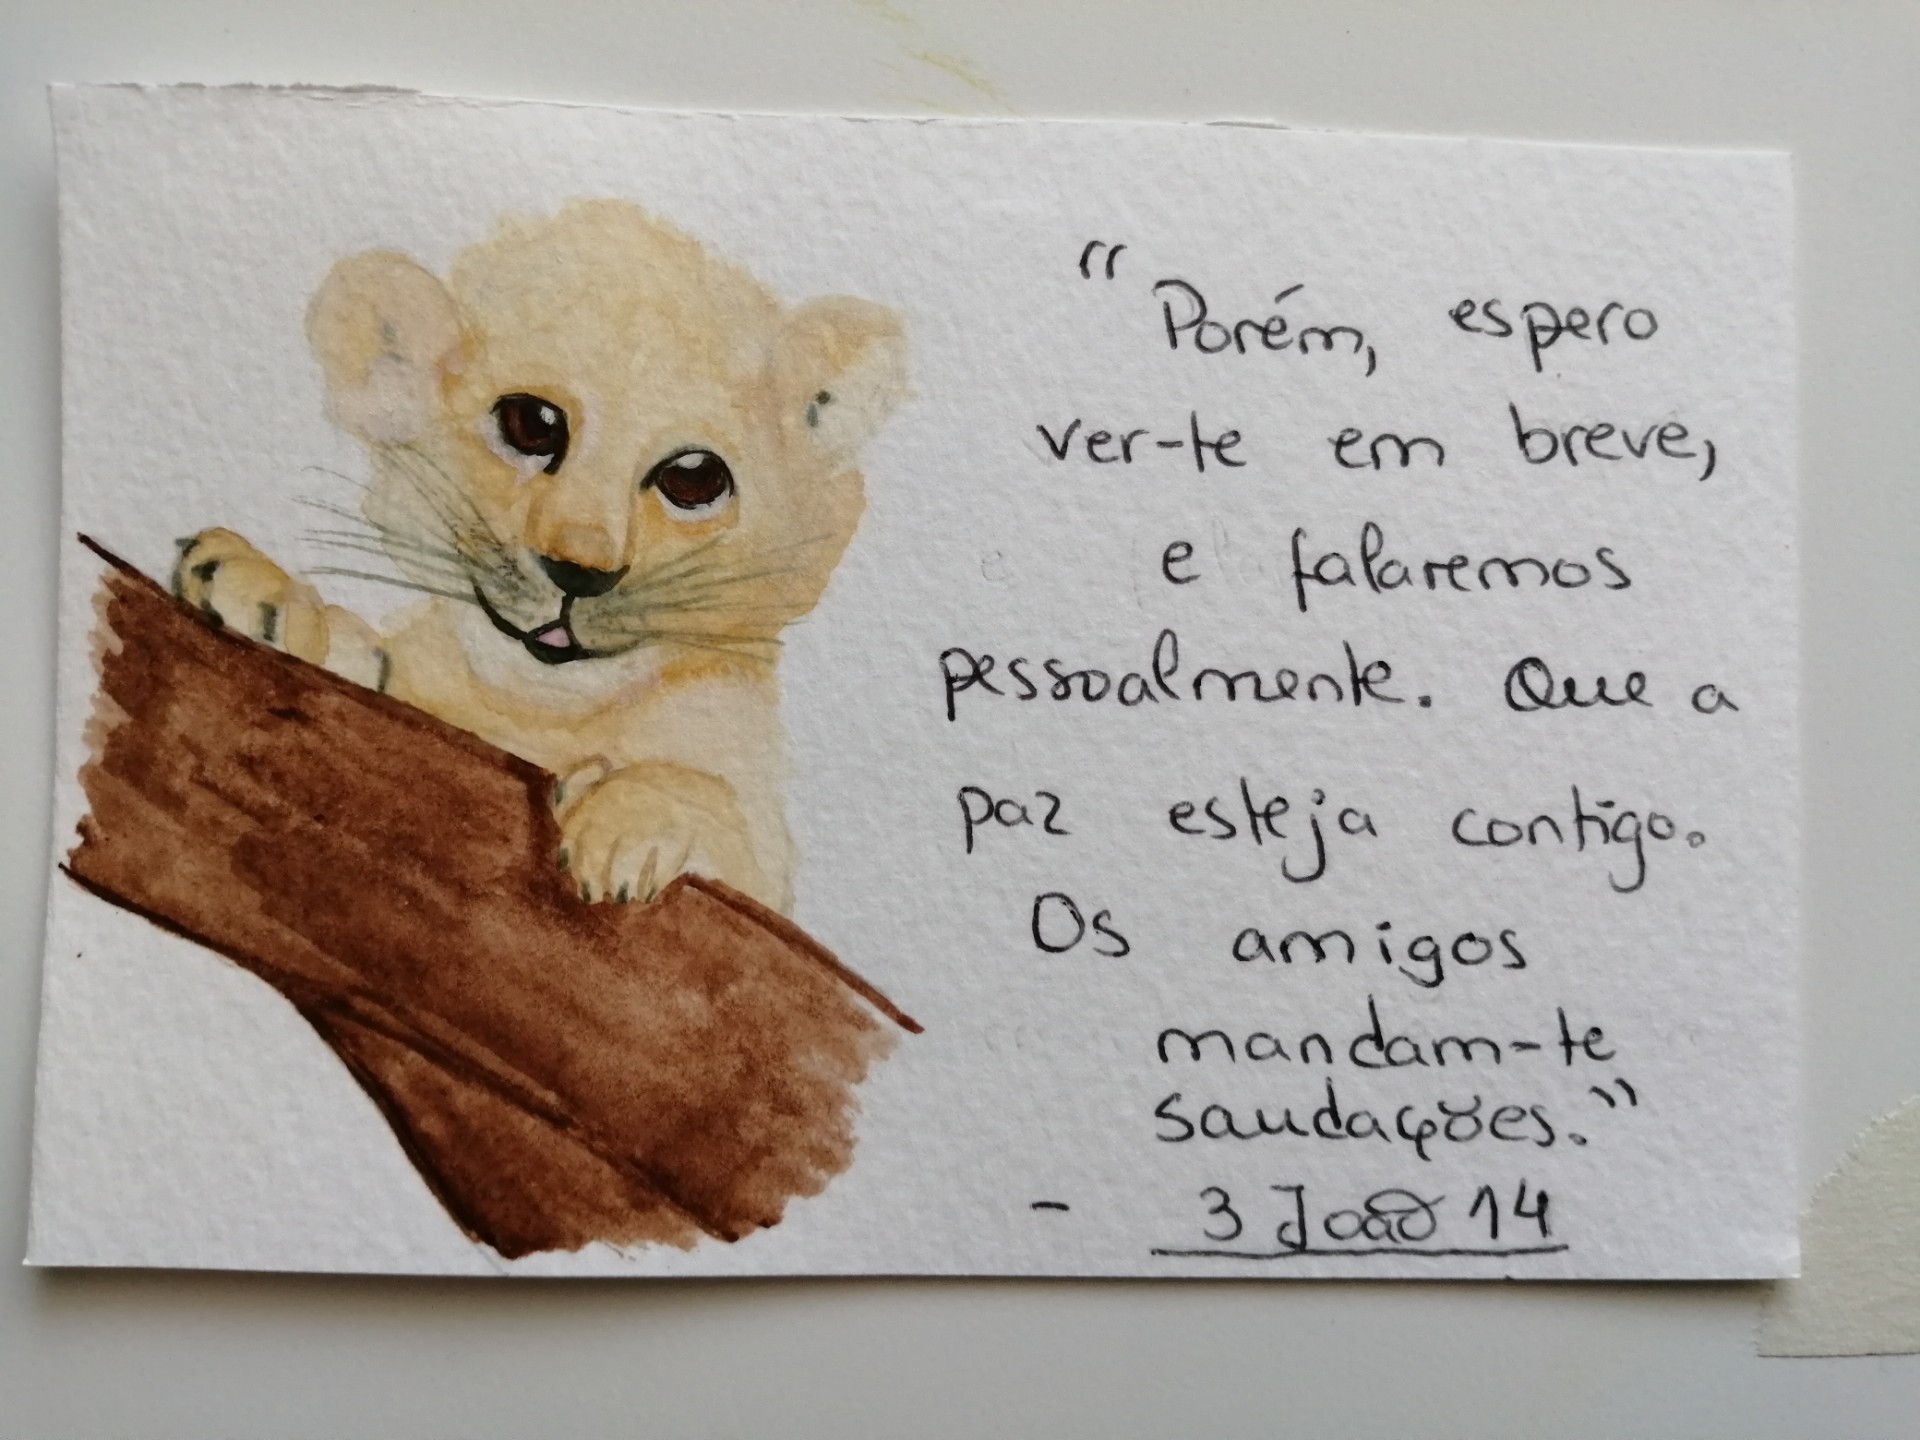 “Porém, espero
ver-te em breve,
e falaremos
pessoalmente. Que a
paz esteja contigo.
Os amigos
mandam-te
saudações.”
- 3 João 14